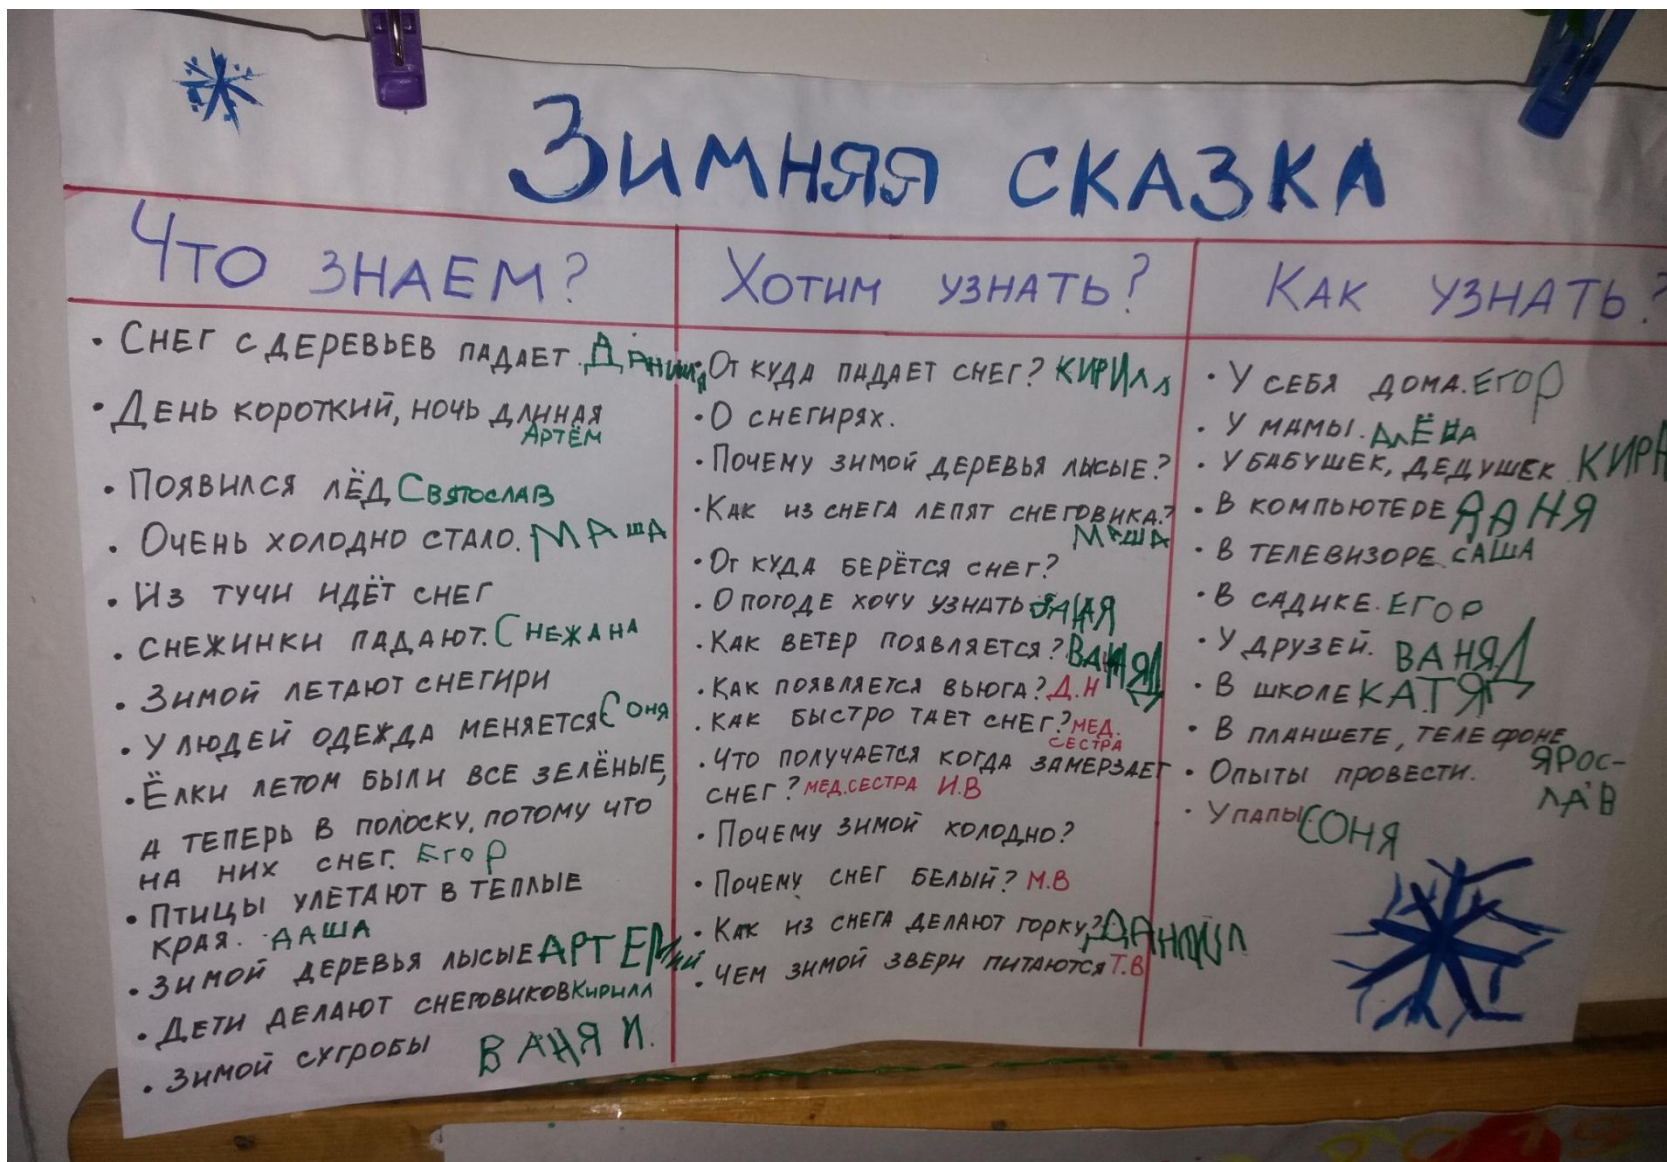 Зимняя сказка
Что знаем?
• Снег с деревьев падает. Данила
• День короткий, ночь длинная
Артём
• Появился лёд Святослав
• Очень холодно стало. Маша
• Из тучи идёт снег
• Снежинки падают. Снежана
• Зимой летают снегири
• У людей одежда меняется Соня
• Ёлки летом были все зелёные,
а теперь в полоску, потому что
на них снег. Егор
• Птицы улетают в теплые
края. Даша
• Зимой деревья лысые Артемий
• Дети делают снеговиков Кирилл
• Зимой сугробы Ваня И.
Хотим узнать?
• От куда падает снег? Кирилл
• О снегирях.
• Почему зимой деревья лысые?
• Как из снега лепят снеговика?
Маша
• От куда берётся снег?
• О погоде хочу узнать
• Как ветер появляется? Ваня Д
• Как появляется вьюга? Д.Н
• Как быстро тает снег? мед.
сестра
• Что получается когда замерзает
снег? мед.сестра И.В
• Почему зимой холодно?
• Почему снег белый? М.В
• Как из снега делают горку? Даниил
• Чем зимой звери питаются Т.В
Как узнать?
• У себя дома. Егор
• У мамы. Алёна
• У бабушек, дедушек. Кира
• В компьютере Даня
• В телевизоре Саша
• В садике. Егор
• У друзей. Ваня Д
• В школе Катя
• В планшете, телефоне
Ярос-
лав
• Опыты провести.
• У папы Соня